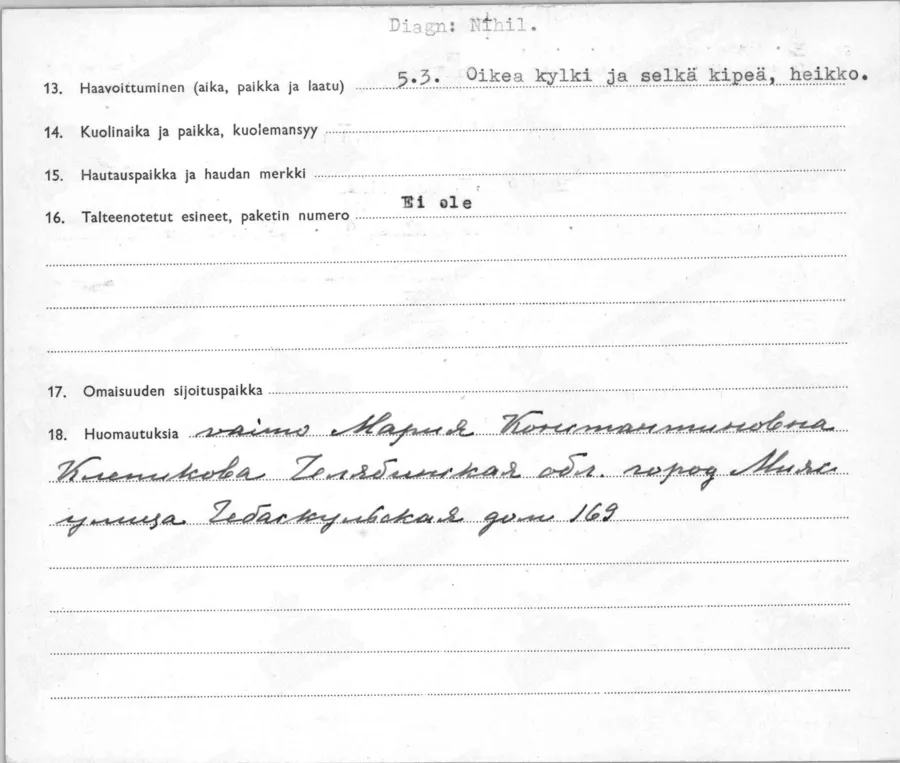 Diagn: Nihil.
13. Haavoittuminen (aika, paikka ja laatu) 5.3. Oikea kylki ja selkä kipeä, heikko.
14. Kuolinaika ja paikka, kuolemansyy
15. Hautauspaikka ja haudan merkki
16. Talteenotetut esineet, paketin numero Ei ole
17. Omaisuuden sijoituspaikka
18. Huomautuksia vaimo Мария Константиновна
Клетикова Челябинская обл. город Мияс
улица Чебаскульская дом 169